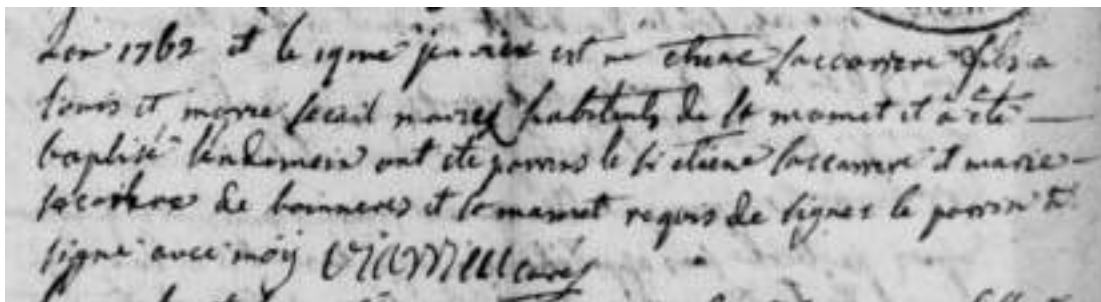 Lan 1762 et le 19me janvier est né etiene Saccarrere fils a
Louis et marie secail mariez habitents de St mamet et a été
baptisé lendemein ont été parrins le sr etiene Saccarrere et marie
de et St mamet requis de signer le parrin a
signé avec moy curé